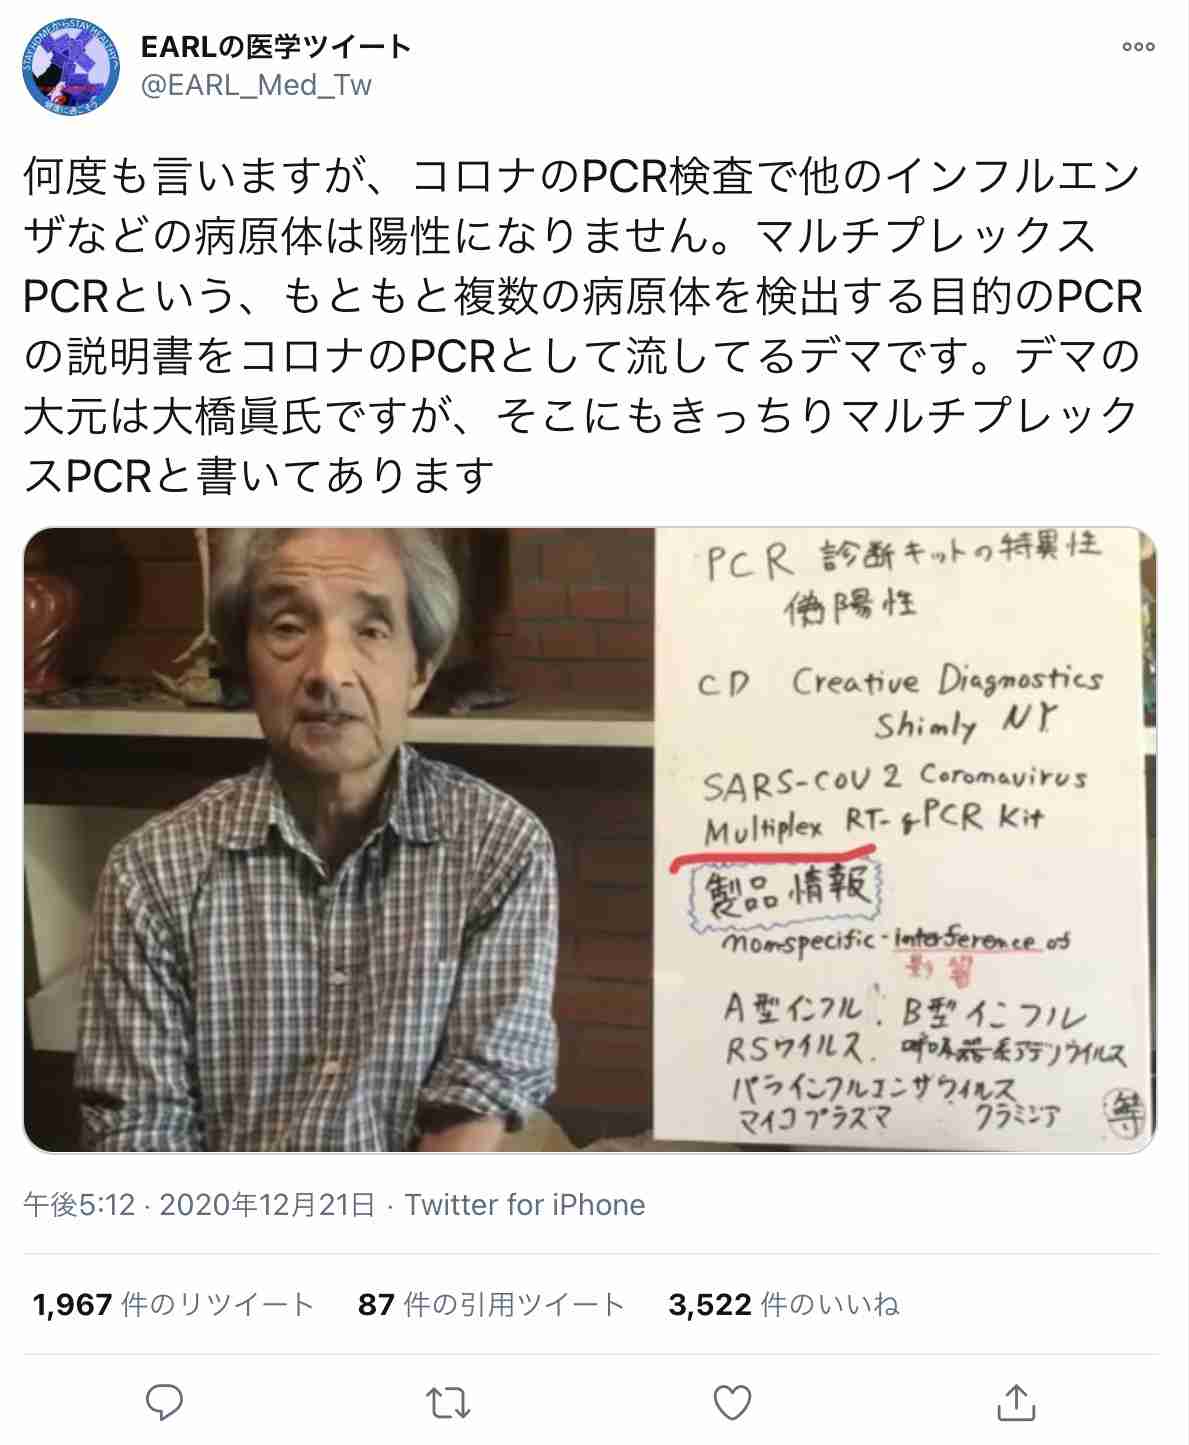 EARLの医学ツイート
@EARL_Med_Tw
何度も言いますが、コロナのPCR検査で他のインフルエン
ザなどの病原体は陽性になりません。マルチプレックス
PCRという、もともと複数の病原体を検出する目的のPCR
の説明書をコロナのPCRとして流してるデマです。デマの
大元は大橋眞氏ですが、そこにもきっちりマルチプレック
スPCRと書いてあります
PCR 診断キットの特異性
偽陽性
CD Creative Diagnostics
Shimly NY
SARS-CoV 2 Coromavirus
Multiplex RT-qPCR Kit
製品情報
nomspecific interference of
影響
A型インフル. B型インフル
RSウイルス. 呼吸器系アデノウイルス
パラインフルエンザウィルス
マイコプラズマ クラミジア 等
午後5:12 · 2020年12月21日 · Twitter for iPhone
1,967 件のリツイート 87 件の引用ツイート 3,522 件のいいね